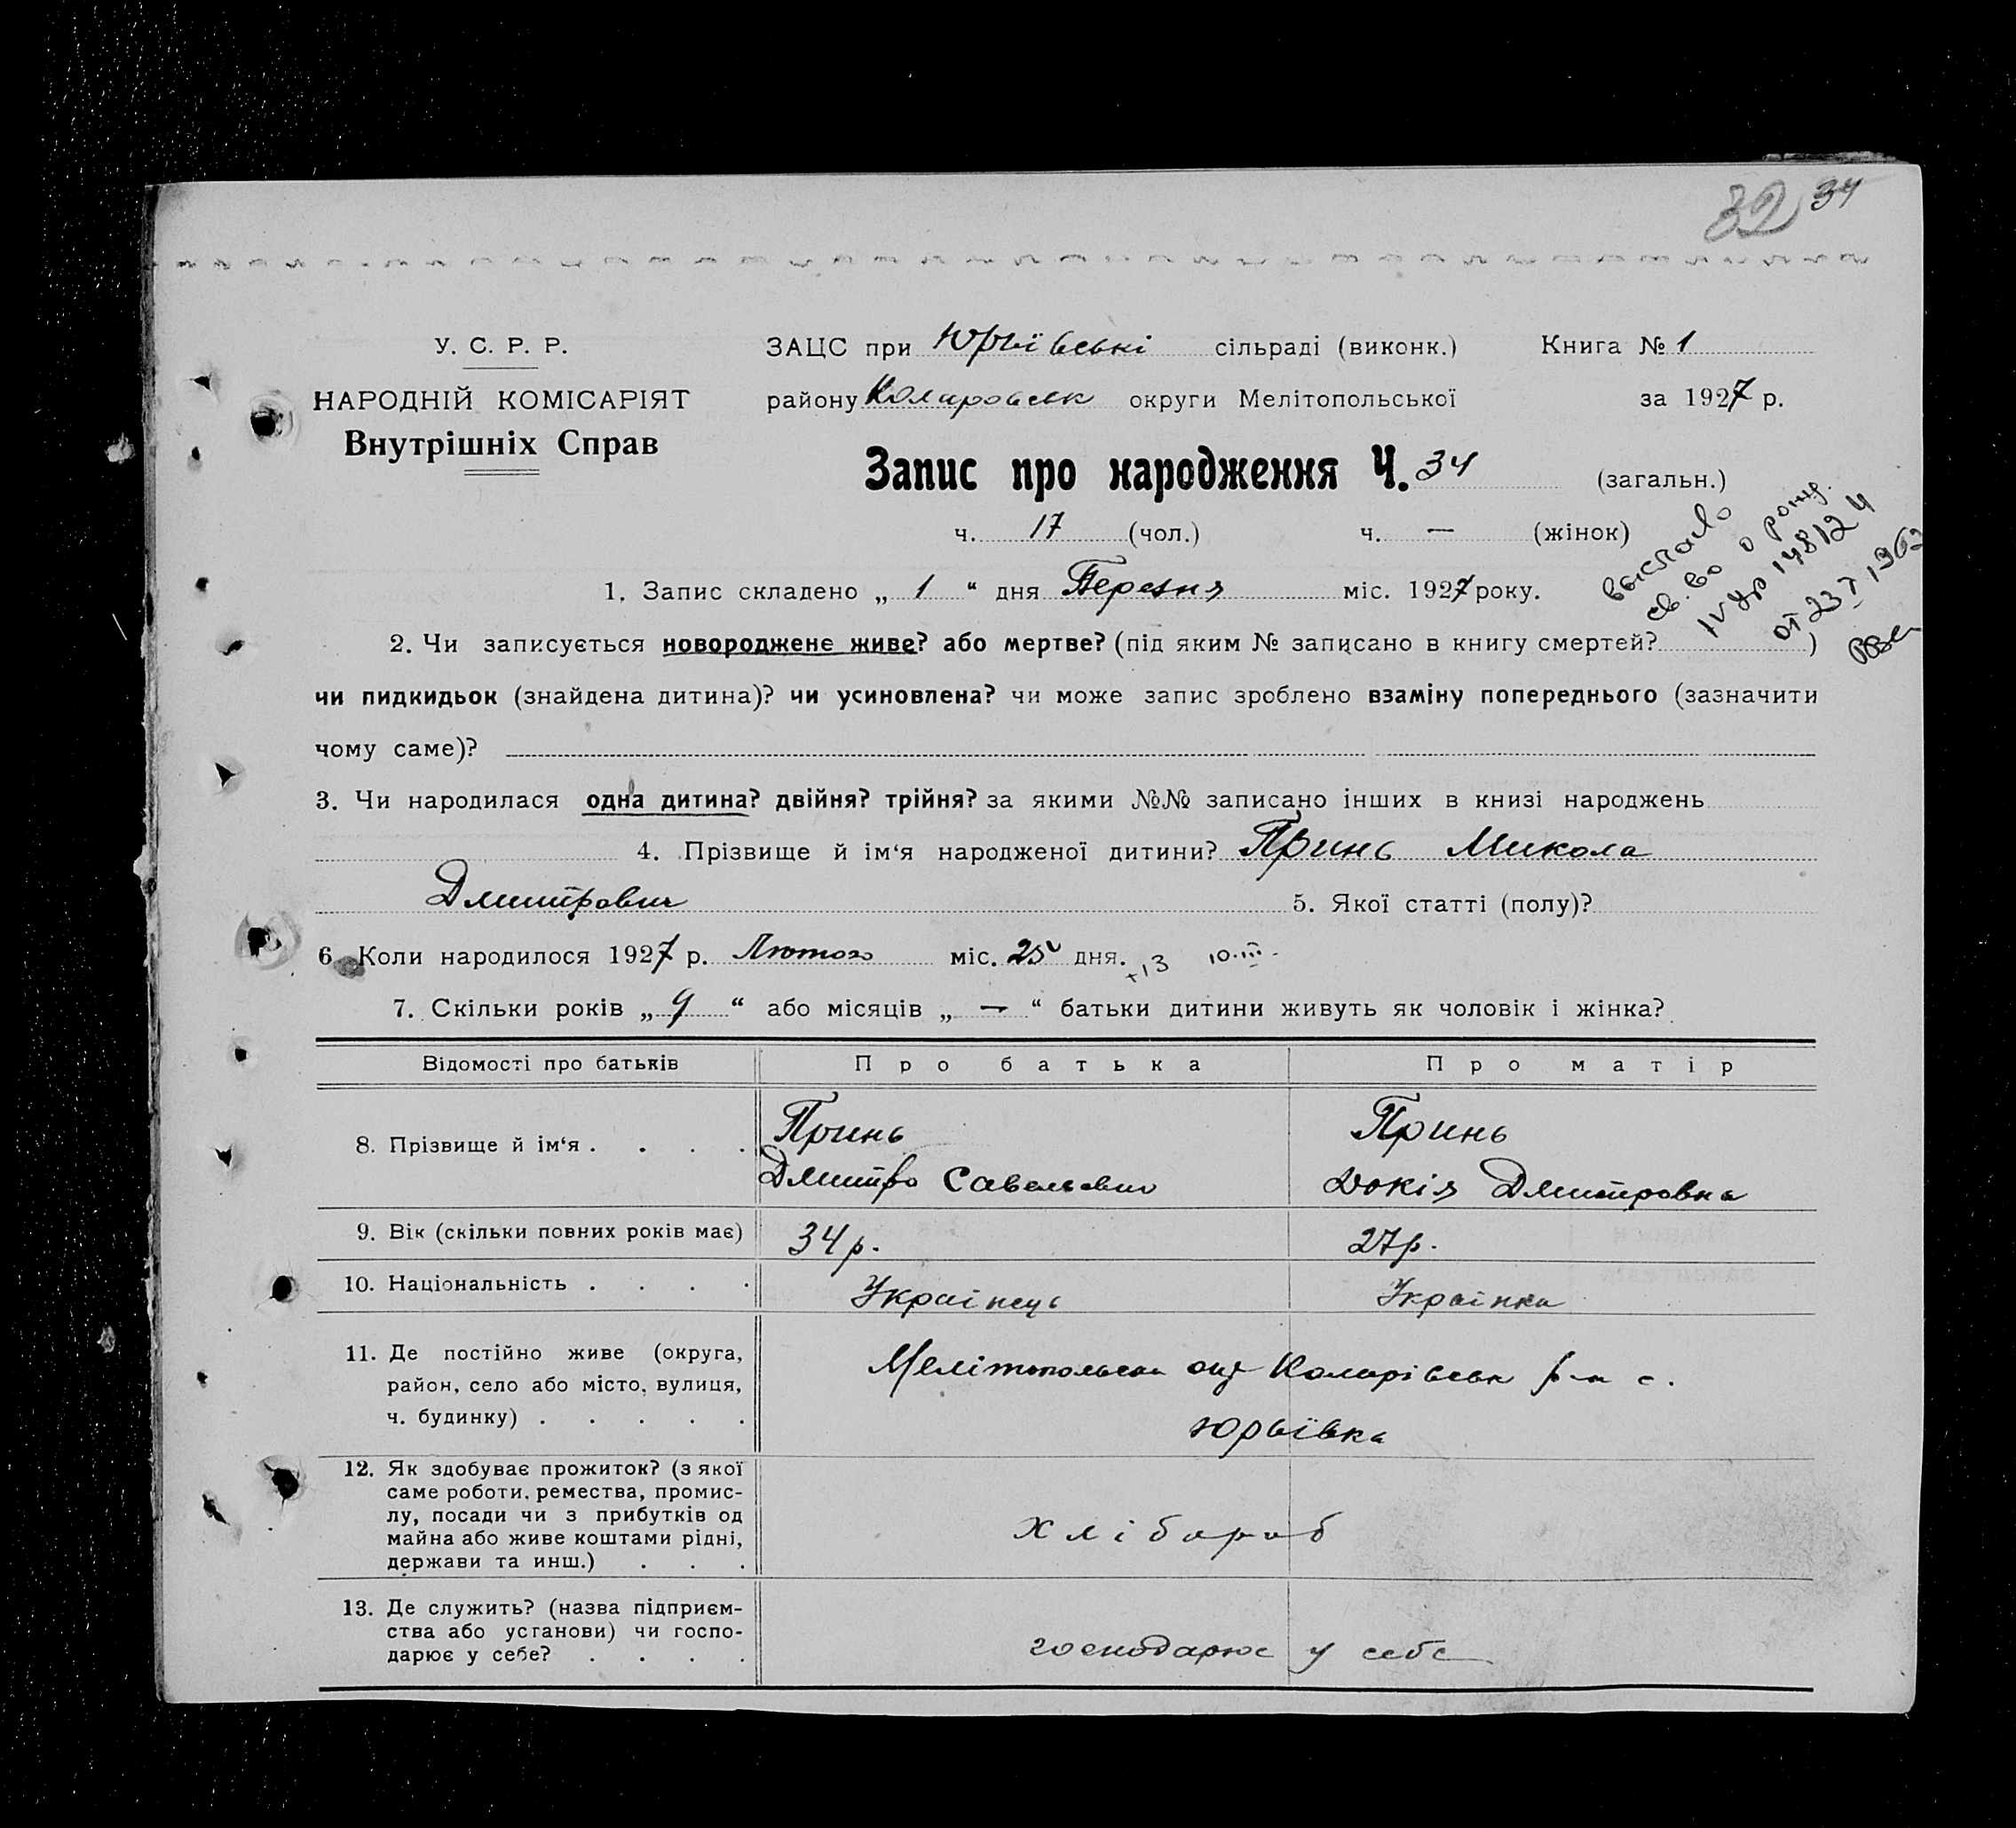 32 34
У. С. Р. Р.
НАРОДНІЙ КОМІСАРІЯТ
Внутрішніх Справ
ЗАЦС при Юрьївські сільраді (виконк.) Книга № 1
району Коларовськ округи Мелітопольської за 1927 р.
Запис про народження Ч. 34 (загальн.)
ч. 17 (чол.) ч. — (жінок)
выслано
св.во о рожд.
IV УР 148124
от 23
1. Запис складено „ 1 “ дня Березня міс. 1927 року.
2. Чи записується новороджене живе? або мертве? (під яким № записано в книгу смертей? )
чи пидкидьок (знайдена дитина)? чи усиновлена? чи може запис зроблено взаміну попереднього (зазначити
чому саме)?
3. Чи народилася одна дитина? двійня? трійня? за якими №№ записано інших в книзі народжень
4. Прізвище й ім‘я народженої дитини? Принь Микола
Дмитрович 5. Якої статті (полу)?
6. Коли народилося 1927 р. Лютого міс. 25 дня. +13 10.III.
7. Скільки років „ 9 “ або місяців „ — “ батьки дитини живуть як чоловік і жінка?
Відомості про батьків Про батька Про матір
8. Прізвище й ім‘я . . . . Принь Принь
Дмитро Савельович Докія Дмитровна
9. Вік (скільки повних років має) 34 р. 27 р.
10. Національність . . . . Українець Українка
11. Де постійно живе (округа,
район, село або місто, вулиця,
ч. будинку) . . . . .
Мелітопольська окр Коларівськ р-н с.
Юрьївка
12. Як здобуває прожиток? (з якої
саме роботи, ремества, промис-
лу, посади чи з прибутків од
майна або живе коштами рідні,
держави та инш.) . . .
Хлібороб
13. Де служить? (назва підприєм-
ства або установи) чи госпо-
дарює у себе? . . . .
господарює у себе